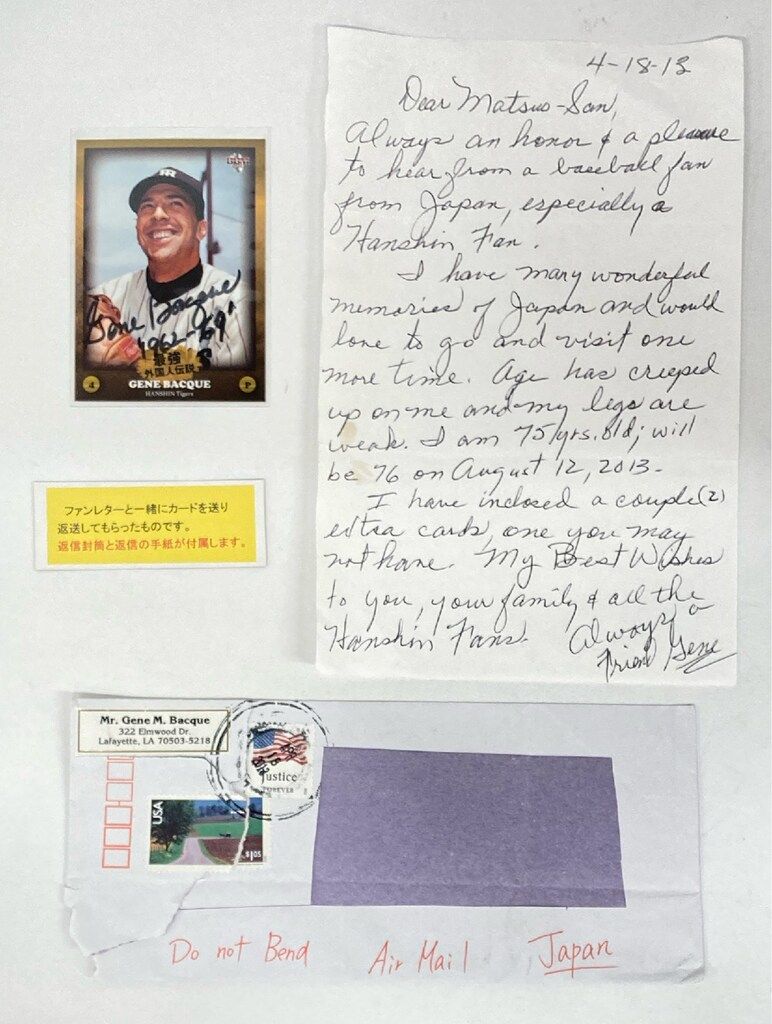 4-18-13
Dear Matsuo-San,
Always an honor & a pleasure
to hear from a baseball fan
from Japan, especially a
Hanshin Fan.
I have many wonderful
memories of Japan and would
love to go and visit one
more time. Age has creeped
up on me and my legs are
weak. I am 75 yrs. old; will
be 76 on August 12, 2013.
I have inclosed a couple (2)
extra cards, one you may
not have. My Best Wishes
to you, your family & all the
Hanshin Fans.
Always a
friend Gene
BBM
Gene Bacque
1962-'69'
最強
外国人伝説
4
GENE BACQUE
P
HANSHIN Tigers
ファンレターと一緒にカードを送り
返送してもらったものです。
返信封筒と返信の手紙が付属します。
Mr. Gene M. Bacque
322 Elmwood Dr.
Lafayette, LA 70503-5218
Justice
FOREVER
USA
$1.05
Do not Bend
Air Mail
Japan